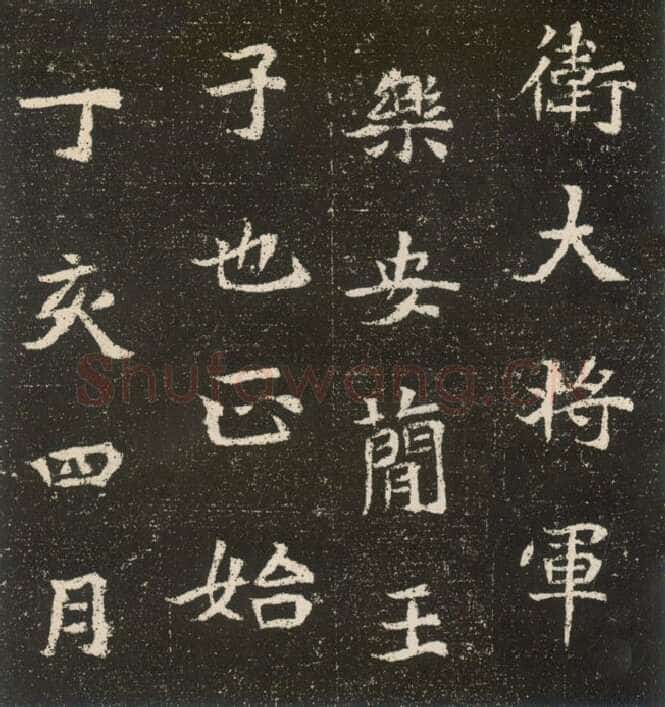 衛大将軍
樂安蕳王
子也正始
丁亥四月
Shufawang.cn